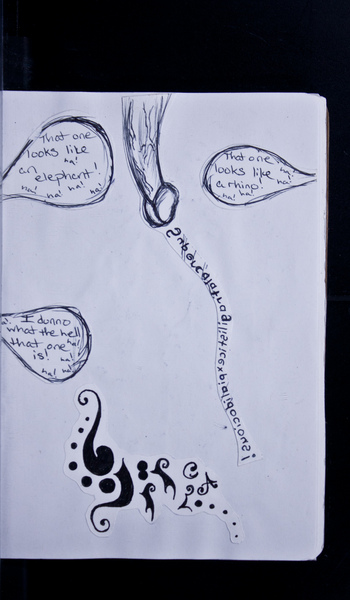 That one
looks like
ha!
an elephant!
ha! ha! ha! ha!
That one
looks like ha!
a rhino! ha!
ha! ha!
I dunno
what the hell
that one ha!
is! ha!
ha! ha!